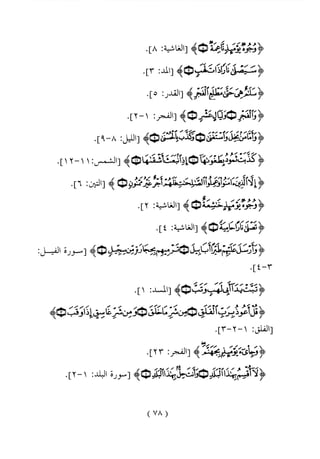 ﴿ وُجُوهٌ يَوْمَئِذٍ نَاعِمَةٌ ﴾ [الغاشية: ٨].
﴿ سَيَصْلَى نَارًا ذَاتَ لَهَبٍ ﴾ [المسد: ٣].
﴿ سَلَامٌ هِيَ حَتَّى مَطْلَعِ الْفَجْرِ ﴾ [القدر: ٥].
﴿ وَالْفَجْرِ وَلَيَالٍ عَشْرٍ ﴾ [الفجر: ١-٢].
﴿ وَأَمَّا مَنْ بَخِلَ وَاسْتَغْنَى وَكَذَّبَ بِالْحُسْنَى ﴾ [الليل: ٨-٩].
﴿ كَذَّبَتْ ثَمُودُ بِطَغْوَاهَا إِذِ انْبَعَثَ أَشْقَاهَا ﴾ [الشمس: ١١-١٢].
﴿ إِلَّا الَّذِينَ آمَنُوا وَعَمِلُوا الصَّالِحَاتِ فَلَهُمْ أَجْرٌ غَيْرُ مَمْنُونٍ ﴾ [التين: ٦].
﴿ وُجُوهٌ يَوْمَئِذٍ خَاشِعَةٌ ﴾ [الغاشية: ٢].
﴿ تَصْلَى نَارًا حَامِيَةً ﴾ [الغاشية: ٤].
﴿ وَأَرْسَلَ عَلَيْهِمْ طَيْرًا أَبَابِيلَ تَرْمِيهِمْ بِحِجَارَةٍ مِنْ سِجِّيلٍ ﴾ [سورة الفيل:
٣-٤].
﴿ تَبَّتْ يَدَا أَبِي لَهَبٍ وَتَبَّ ﴾ [المسد: ١].
﴿ قُلْ أَعُوذُ بِرَبِّ الْفَلَقِ مِنْ شَرِّ مَا خَلَقَ وَمِنْ شَرِّ غَاسِقٍ إِذَا وَقَبَ ﴾
[الفلق: ١-٢-٣].
﴿ وَجِيءَ يَوْمَئِذٍ بِجَهَنَّمَ ﴾ [الفجر: ٢٣].
﴿ لَا أُقْسِمُ بِهَذَا الْبَلَدِ وَأَنْتَ حِلٌّ بِهَذَا الْبَلَدِ ﴾ [سورة البلد: ١-٢].
( ٧٨ )